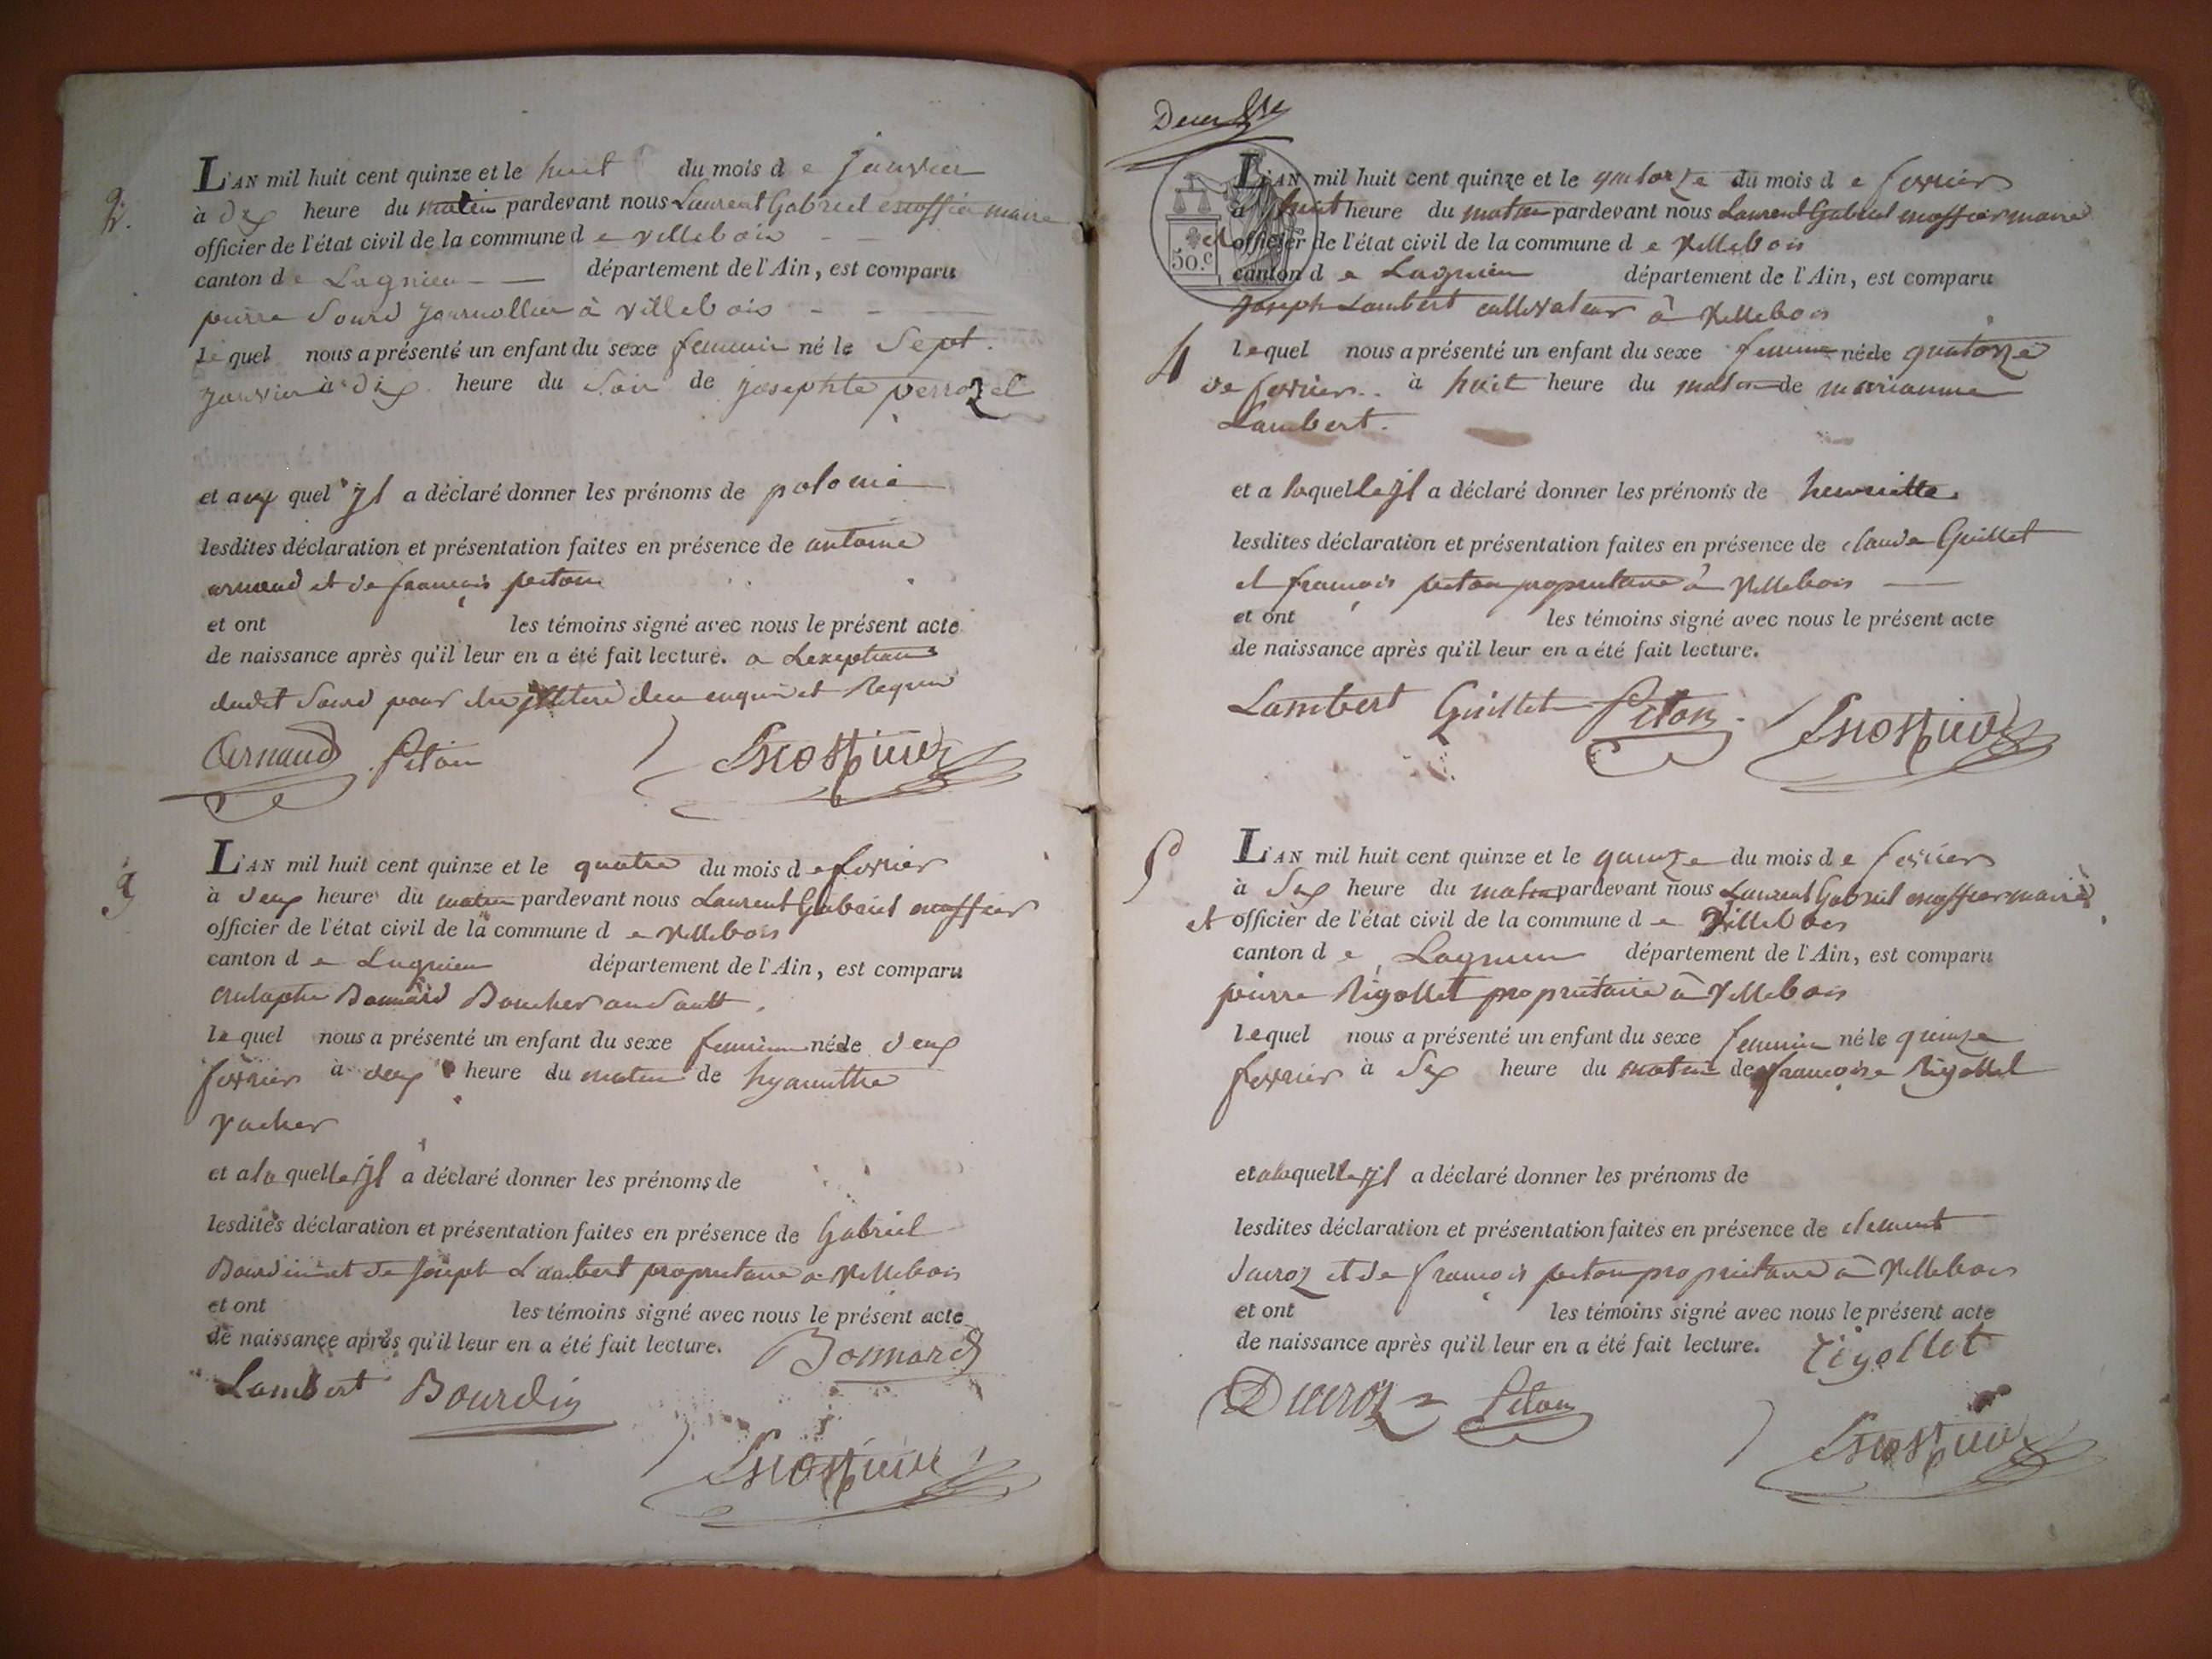 2.
L'AN mil huit cent quinze et le huit du mois d e janvier
à dix heure du matin pardevant nous Laurent Gabriel escoffier maire
officier de l'état civil de la commune d e villebois
canton d e Lagnieu département de l'Ain, est comparu
pierre Sourd journallier à villebois
le quel nous a présenté un enfant du sexe feminin né le Sept
janvier à dix heure du Soir de josephte perrozet
et auquel jl a déclaré donner les prénoms de polonie
lesdites déclaration et présentation faites en présence de antoine
arnaud et de françois piton
et ont les témoins signé avec nous le présent acte
de naissance après qu'il leur en a été fait lecture. a Lexeption
dudit Sourd pour être illiteré de ce enquis et Requis
Arnaud Piton Escoffier
3
L'AN mil huit cent quinze et le quatre du mois d e fevrier
à deux heure du matin pardevant nous Laurent Gabriel escoffier
officier de l'état civil de la commune d e villebois
canton d e Lagnieu département de l'Ain, est comparu
Bonnard Boucher au Sault
le quel nous a présenté un enfant du sexe feminin né le deux
fevrier à deux heure du matin de hyacinthe
vacher
et a la quelle jl a déclaré donner les prénoms de
lesdites déclaration et présentation faites en présence de Gabriel
Bourdin et de Joseph Lambert proprietaire a villebois
et ont les témoins signé avec nous le présent acte
de naissance après qu'il leur en a été fait lecture. Bonnard
Lambert Bourdin
Escoffier
50.c
4
L'AN mil huit cent quinze et le quatorze du mois d e fevrier
a huit heure du matin pardevant nous Laurent Gabriel escoffier maire
et officier de l'état civil de la commune d e villebois
canton d e Lagnieu département de l'Ain, est comparu
joseph Lambert cultivateur à villebois
lequel nous a présenté un enfant du sexe feminin né le quatorze
de fevrier à huit heure du matin de marianne
Lambert.
et a laquelle jl a déclaré donner les prénoms de henriette
lesdites déclaration et présentation faites en présence de claude Guillet
et françois piton proprietaire à villebois
et ont les témoins signé avec nous le présent acte
de naissance après qu'il leur en a été fait lecture.
Lambert Guillet Piton Escoffier
5
L'AN mil huit cent quinze et le quinze du mois d e fevrier
à Six heure du matin pardevant nous Laurent Gabriel escoffier maire
et officier de l'état civil de la commune d e villebois
canton d e Lagnieu département de l'Ain, est comparu
pierre Rigollet proprietaire à villebois
lequel nous a présenté un enfant du sexe feminin né le quinze
fevrier à Six heure du matin de françoise Rigollet
et a laquelle jl a déclaré donner les prénoms de
lesdites déclaration et présentation faites en présence de clement
ducroz et de françois piton proprietaire à villebois
et ont les témoins signé avec nous le présent acte
de naissance après qu'il leur en a été fait lecture. rigollet
Ducroz Piton
Escoffier